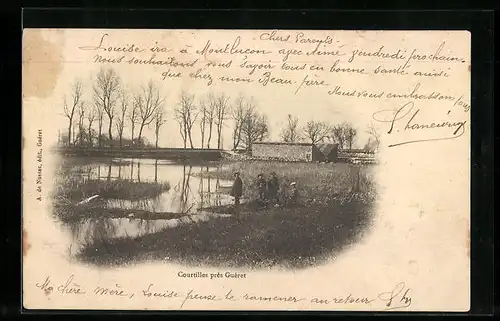 Chers Parents
Louise ira à Montluçon avec Aimé vendredi prochain.
Nous souhaitons vous savoir tous en bonne santé ainsi
que chez mon Beau-père.
Nous vous embrassons
A. de Nussac, édit., Guéret
Courtilles près Guéret
Ma chère mère, Louise pense te ramener au retour